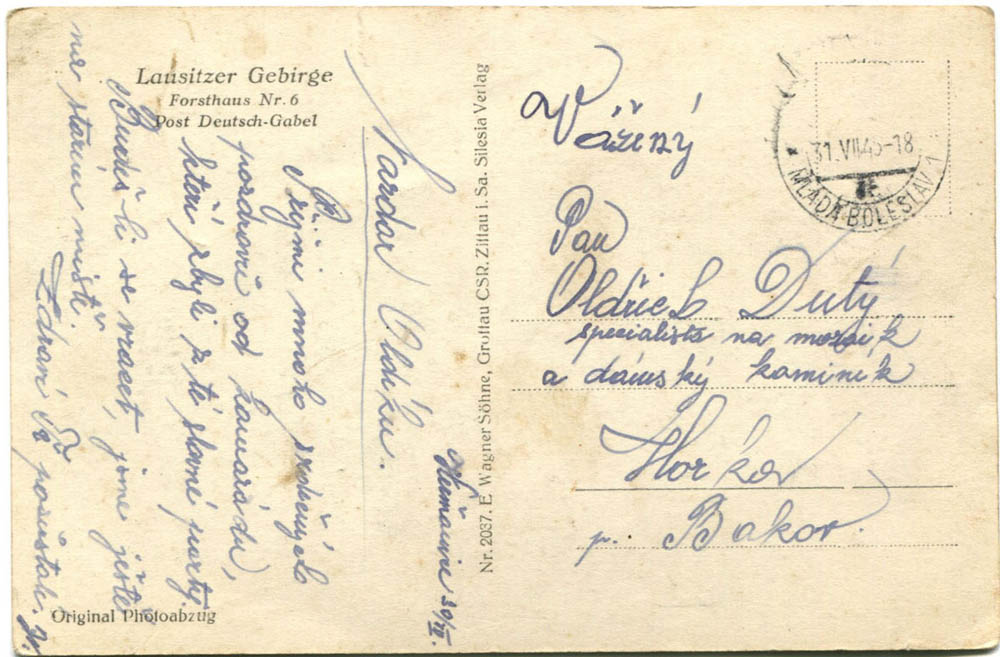 Lausitzer Gebirge
Forsthaus Nr. 6
Post Deutsch-Gabel
Nazdar Oldíku.
Přijmi mnoho srdečných
pozdravů od kamarádů,
kteří zbyli z té slavné party.
Budeš-li se vracet, jsme ještě
na starém místě.
Zdraví Tě
30/VII.
Original Photoabzug
Nr. 2037. E. Wagner Söhne, Grottau CSR. Zittau i. Sa. Silesia Verlag
31.VII.45-18
MLADÁ BOLESLAV 1
Vážený
Pan
Oldřich Dutý
specialista na mozaik
a dámský kaminík
Horka
p. Bakov.